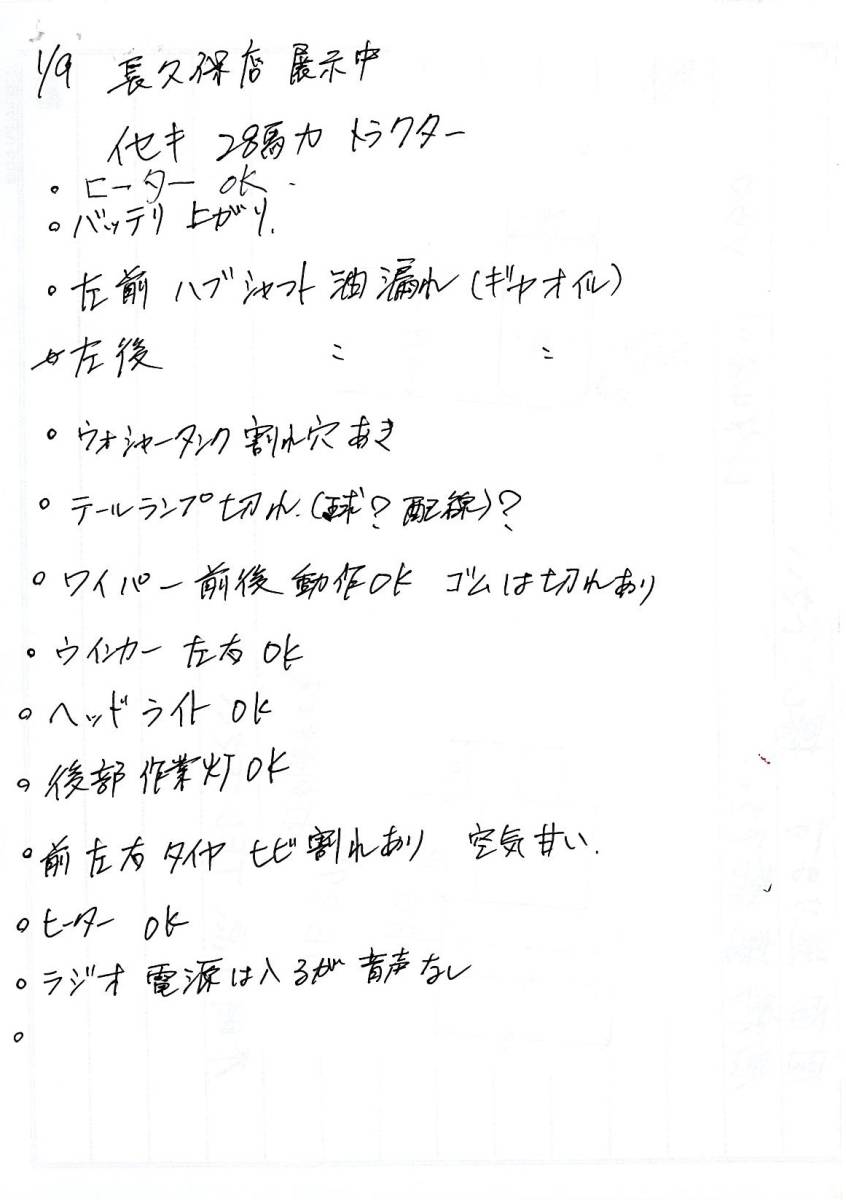 1/9 長久保店 展示中
イセキ 28馬力 トラクター
。ヒーター OK.
。バッテリ 上がり.
。左前 ハブシャフト 油漏れ (ギヤオイル)
左後 〃 〃
。ウォシャータンク 割れ穴あき
。テールランプ切れ.(球? 配線)?
。ワイパー 前後 動作OK ゴムは切れあり
。ウインカー 左右 OK
。ヘッドライト OK
。後部 作業灯 OK
。前左右タイヤ ヒビ割れあり 空気甘い.
。ヒーター OK
。ラジオ 電源は入るが 音声なし
。